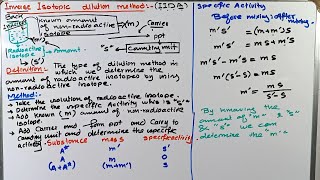 Inverse Isotopic dilution method:- (IIDA)
Back
Known amount
of non-radioactive (m)
Carrier
ppt
Radioactive
isotope
"s"
counting unit
Definition:- The type of method in
which we determine the
amount of radio isotopes by using
non-radioactive isotope.
Method:-
• Take the solution of radioactive isotope.
• Determine the unspecific activity which is "s'"
• Add known (m) amount of non-radioactive
isotope.
• Add Carrier and form ppt and Carry to
counting unit and determine the specific
activity
Substance mass specific activity
A* m' s'
A m 0
(A+A*) (m+m') s
Specific Activity
Before mixing: After mixing:-
m's' = (m+m')s
m's' = ms + m's
m's' - m's = ms
m'(s'-s) = ms
m' = ms
s'-s
By knowing the
amount of "m" & "s"
& "s'" we can
determine the "m'"